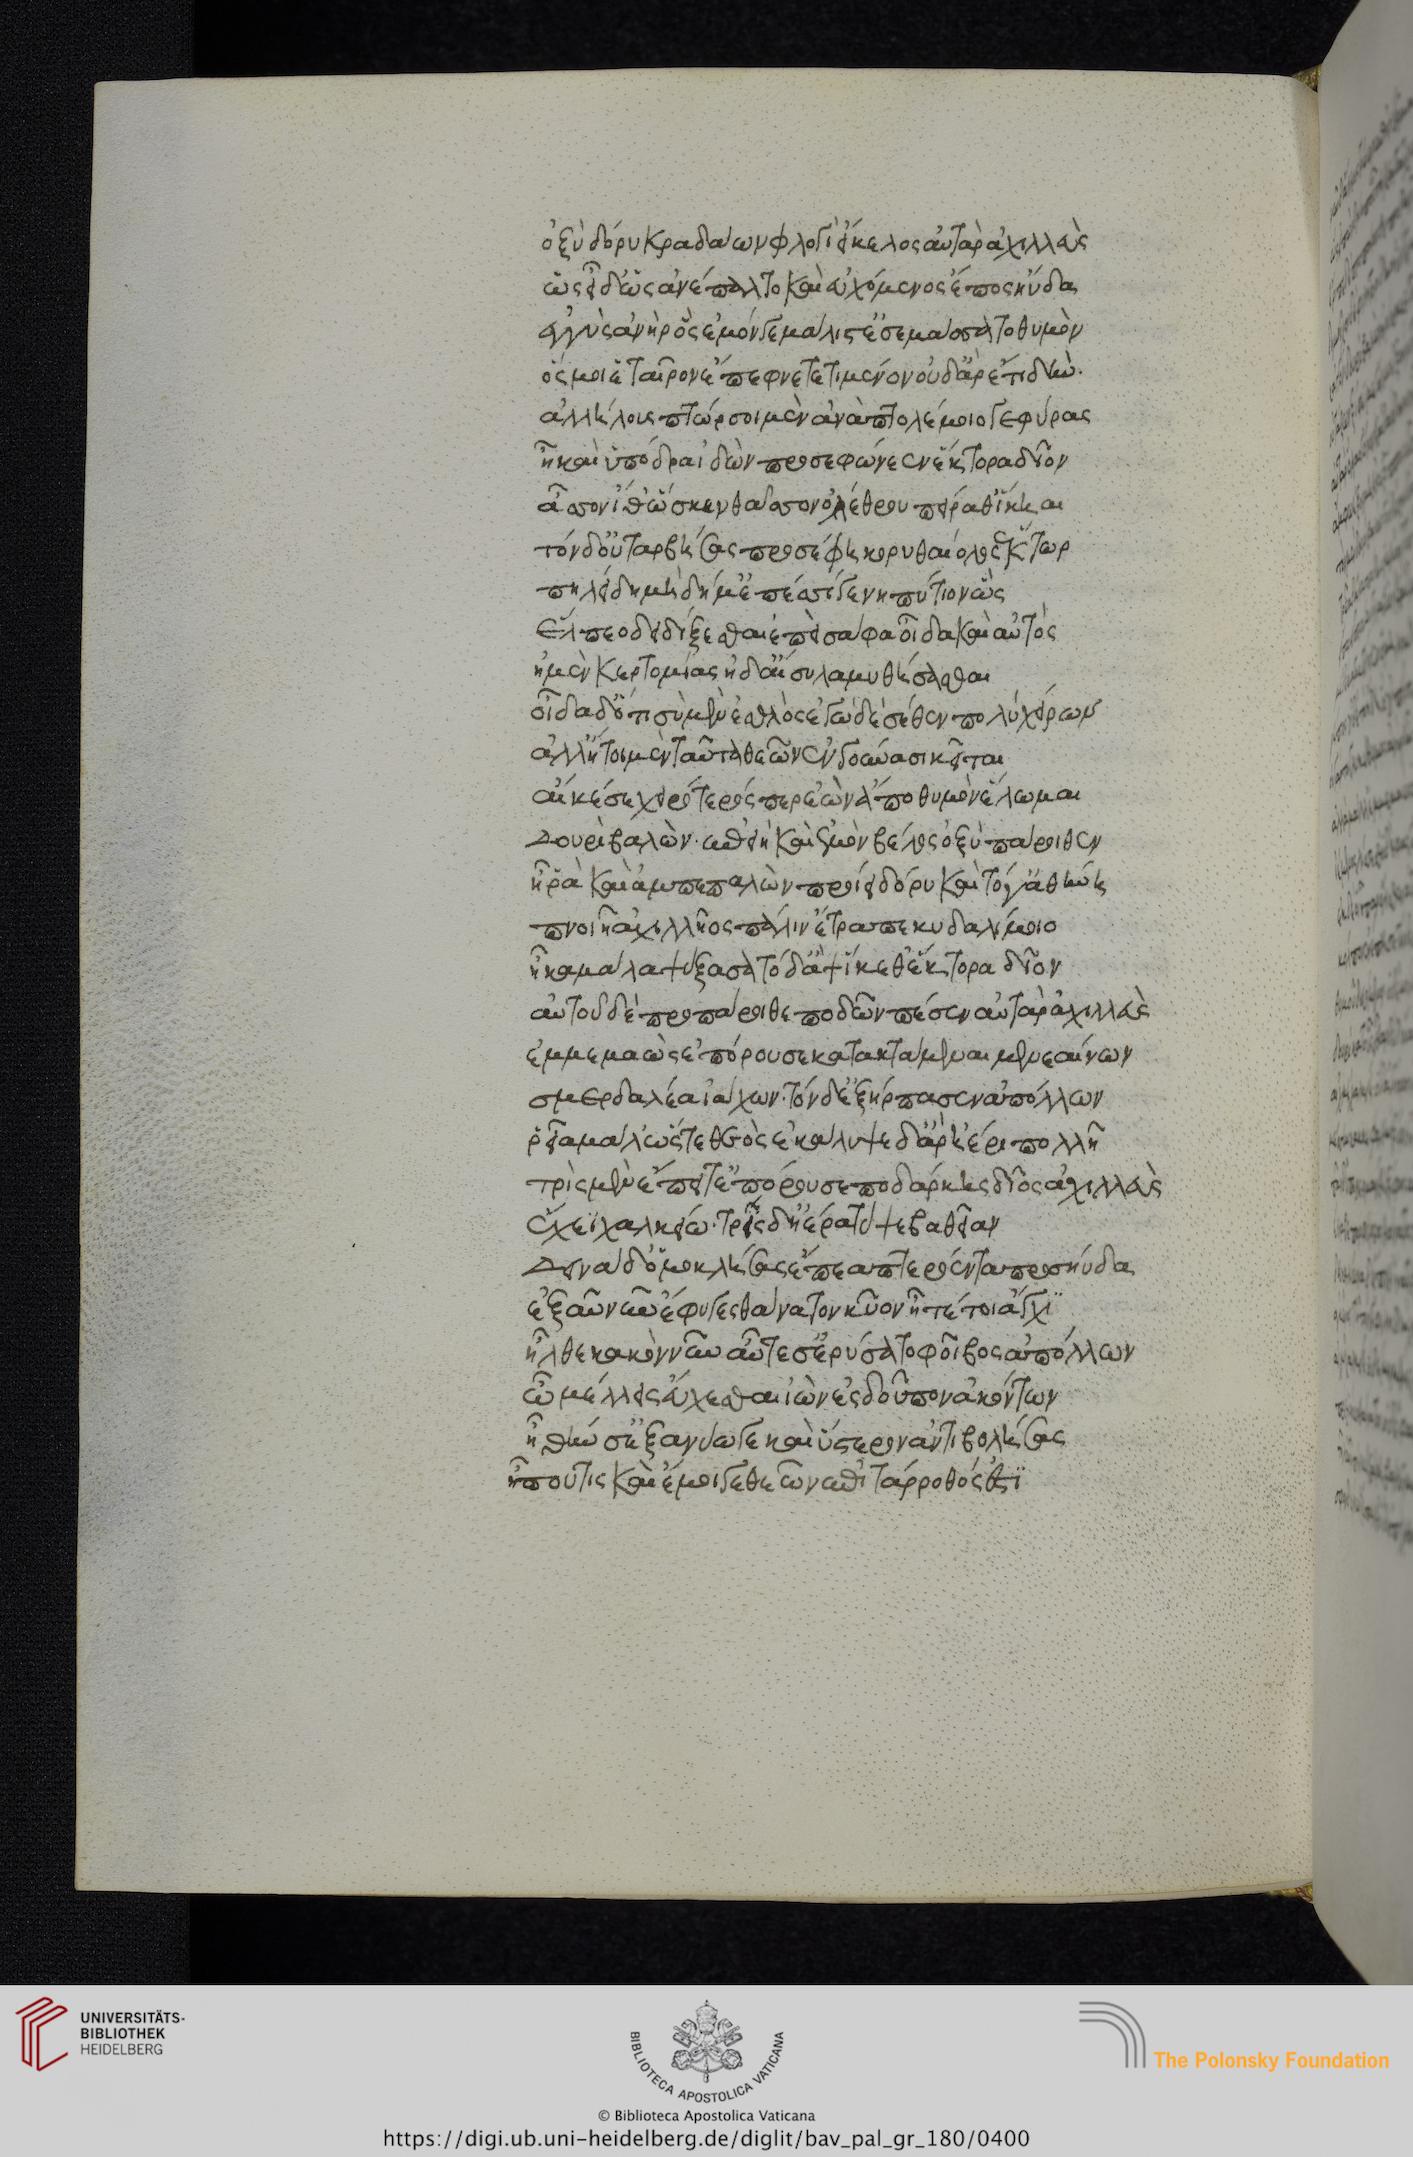 ὀξὺ δόρυ κραδάων φλογὶ εἴκελος αὐτὰρ ἀχιλλεὺς
ὣς εἶδ' ὣς ἀνέπαλτο καὶ εὐχόμενος ἔπος ηὔδα
ἐγγὺς ἀνὴρ ὃς ἐμόν γε μάλιστ' ἐσεμάσσατο θυμὸν
ὅς μοι ἑταῖρον ἔπεφνε τετιμένον οὐδ' ἂρ ἔτι δὴν.
ἀλλήλους πτώσσοιμεν ἀνὰ πτολέμοιο γεφύρας
ἦ καὶ ὑπόδρα ἰδὼν προσεφώνεεν ἕκτορα δῖον
ἆσσον ἴθ' ὥς κεν θᾶσσον ὀλέθρου πείραθ' ἵκηαι
τὸν δ' οὐ ταρβήσας προσέφη κορυθαίολος ἕκτωρ
πηλείδη μὴ δή μ' ἐπέεσσί γε νηπύτιον ὣς
ἔλπεο δειδίξεσθαι ἐπεὶ σάφα οἶδα καὶ αὐτὸς
ἠμὲν κερτομίας ἠδ' αἴσυλα μυθήσασθαι
οἶδα δ' ὅτι σὺ μὲν ἐσθλὸς ἐγὼ δὲ σέθεν πολὺ χείρων
ἀλλ' ἤτοι μὲν ταῦτα θεῶν ἐν γούνασι κεῖται
αἴ κέ σε χειρότερός περ ἐὼν ἀπὸ θυμὸν ἕλωμαι
δουρὶ βαλὼν. ἐπειὴ καὶ ἐμὸν βέλος ὀξὺ πάροιθεν
ἦ ῥα καὶ ἀμπεπαλὼν προΐει δόρυ καὶ τό γ' ἀθήνη
πνοιῇ ἀχιλλῆος πάλιν ἔτραπε κυδαλίμοιο
ἦκα μάλα ψύξασα τὸ δ' ἂψ ἵκεθ' ἕκτορα δῖον
αὐτοῦ δὲ προπάροιθε ποδῶν πέσεν αὐτὰρ ἀχιλλεὺς
ἐμμεμαὼς ἐπόρουσε κατακτάμεναι μενεαίνων
σμερδαλέα ἰάχων. τὸν δ' ἐξήρπασεν ἀπόλλων
ῥεῖα μάλ' ὥς τε θεὸς ἐκάλυψε δ' ἂρ ἠέρι πολλῇ
τρὶς μὲν ἔπειτ' ἐπόρουσε ποδάρκης δῖος ἀχιλλεὺς
ἔγχεϊ χαλκείω. τρὶς δ' ἠέρα τύψε βαθεῖαν
δεινὰ δ' ὁμοκλήσας ἔπεα πτερόεντα προσηύδα
ἐξ αὖ νῦν ἔφυγες θάνατον κύον ἦ τέ τοι ἄγχι
ἦλθε κακὸν νῦν αὖτε σ' ἐρύσατο φοῖβος ἀπόλλων
ᾧ μέλλεις εὔχεσθαι ἰὼν ἐς δοῦπον ἀκόντων
ἦ θήν σ' ἐξανύω γε καὶ ὕστερον ἀντιβολήσας
ἤ που τις καὶ ἔμοιγε θεῶν ἐπιτάρροθός ἐστι
UNIVERSITÄTS-
BIBLIOTHEK
HEIDELBERG
BIBLIOTECA APOSTOLICA VATICANA
The Polonsky Foundation
© Biblioteca Apostolica Vaticana
https://digi.ub.uni-heidelberg.de/diglit/bav_pal_gr_180/0400